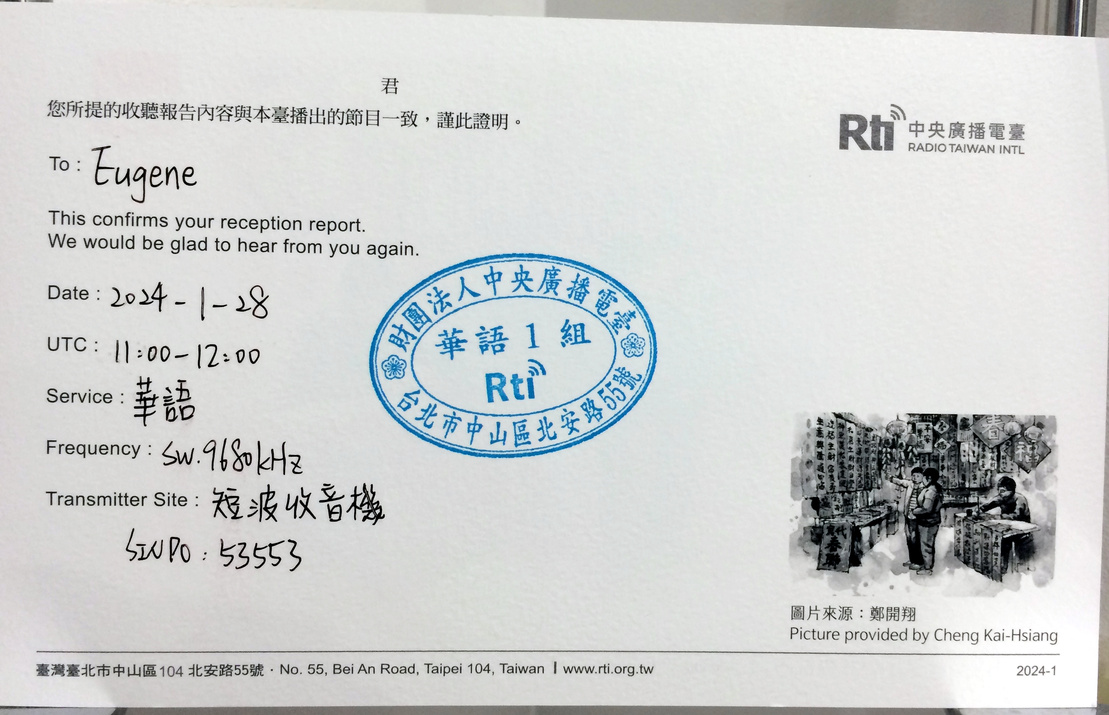 君
您所提的收聽報告內容與本臺播出的節目一致，謹此證明。
To : Eugene
This confirms your reception report.
We would be glad to hear from you again.
Date : 2024-1-28
UTC : 11:00-12:00
Service : 華語
Frequency : SW.9680kHz
Transmitter Site : 短波收音機
SINPO : 53553
Rti 中央廣播電臺
RADIO TAIWAN INTL
財團法人中央廣播電臺
華語1組
Rti
台北市中山區北安路55號
圖片來源：鄭開翔
Picture provided by Cheng Kai-Hsiang
臺灣臺北市中山區104 北安路55號 · No. 55, Bei An Road, Taipei 104, Taiwan | www.rti.org.tw
2024-1